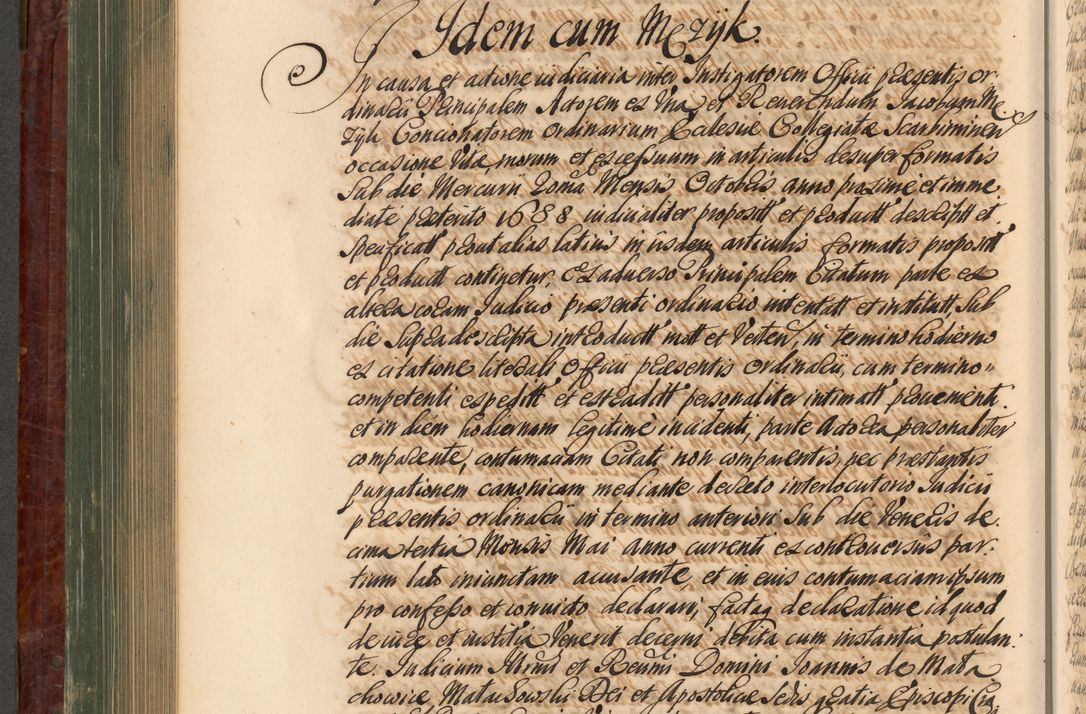 Idem cum Męzyk.
In causa et actione iudiciaria inter Instigatorem Officii præsentis or
dinarii Principalem Actorem ex vna, et Reuerendum Jacobum Mę
zyk Concionatorem ordinarium Eclesiæ Collegiatæ Scarbimirien
occasione Vitæ, morum et excessuum in articulis desuper formatis
sub die Mercurii 20ma Mensis Octobris anno proxime et imme
diate præterito 1688 iudicialiter proposit et product descript et
specificat prout alias latius in iisdem articulis formatis proposit
et product continetur, ex aduerso Principalem Citatum parte ex
altera coram Iudicio præsenti ordinario intentatt et institutt, sub
die supra descripta introductt mott et Verten, in termino hodierno
ex citatione literali Officii præsentis ordinarii, cum termino
competenti expeditt et extraditt personaliter intimatt prouenienti
et in diem hodiernam legitime incidenti, parte Actorea personaliter
comparente, contumaciam Citati non comparentis, nec præstantis
purgationem canonicam mediante decreto interlocutorio Iudicii
præsentis ordinarii in termino anteriori sub die Veneris de
cima tertia Mensis Mai anno currenti ex controuersiis par
tium lato iniunctam accusante, et in eius contumaciam ipsum
pro confesso et conuicto declarari, factaq declaratione id quod
de iure et iustitia Venerit decerni debita cum instantia postulan
te. Iudicium Illrmi et Reurmi Domini Joannis de Mała
chowice Małachowski Dei et Apostolicæ Sedis gratia Episcopi Cra